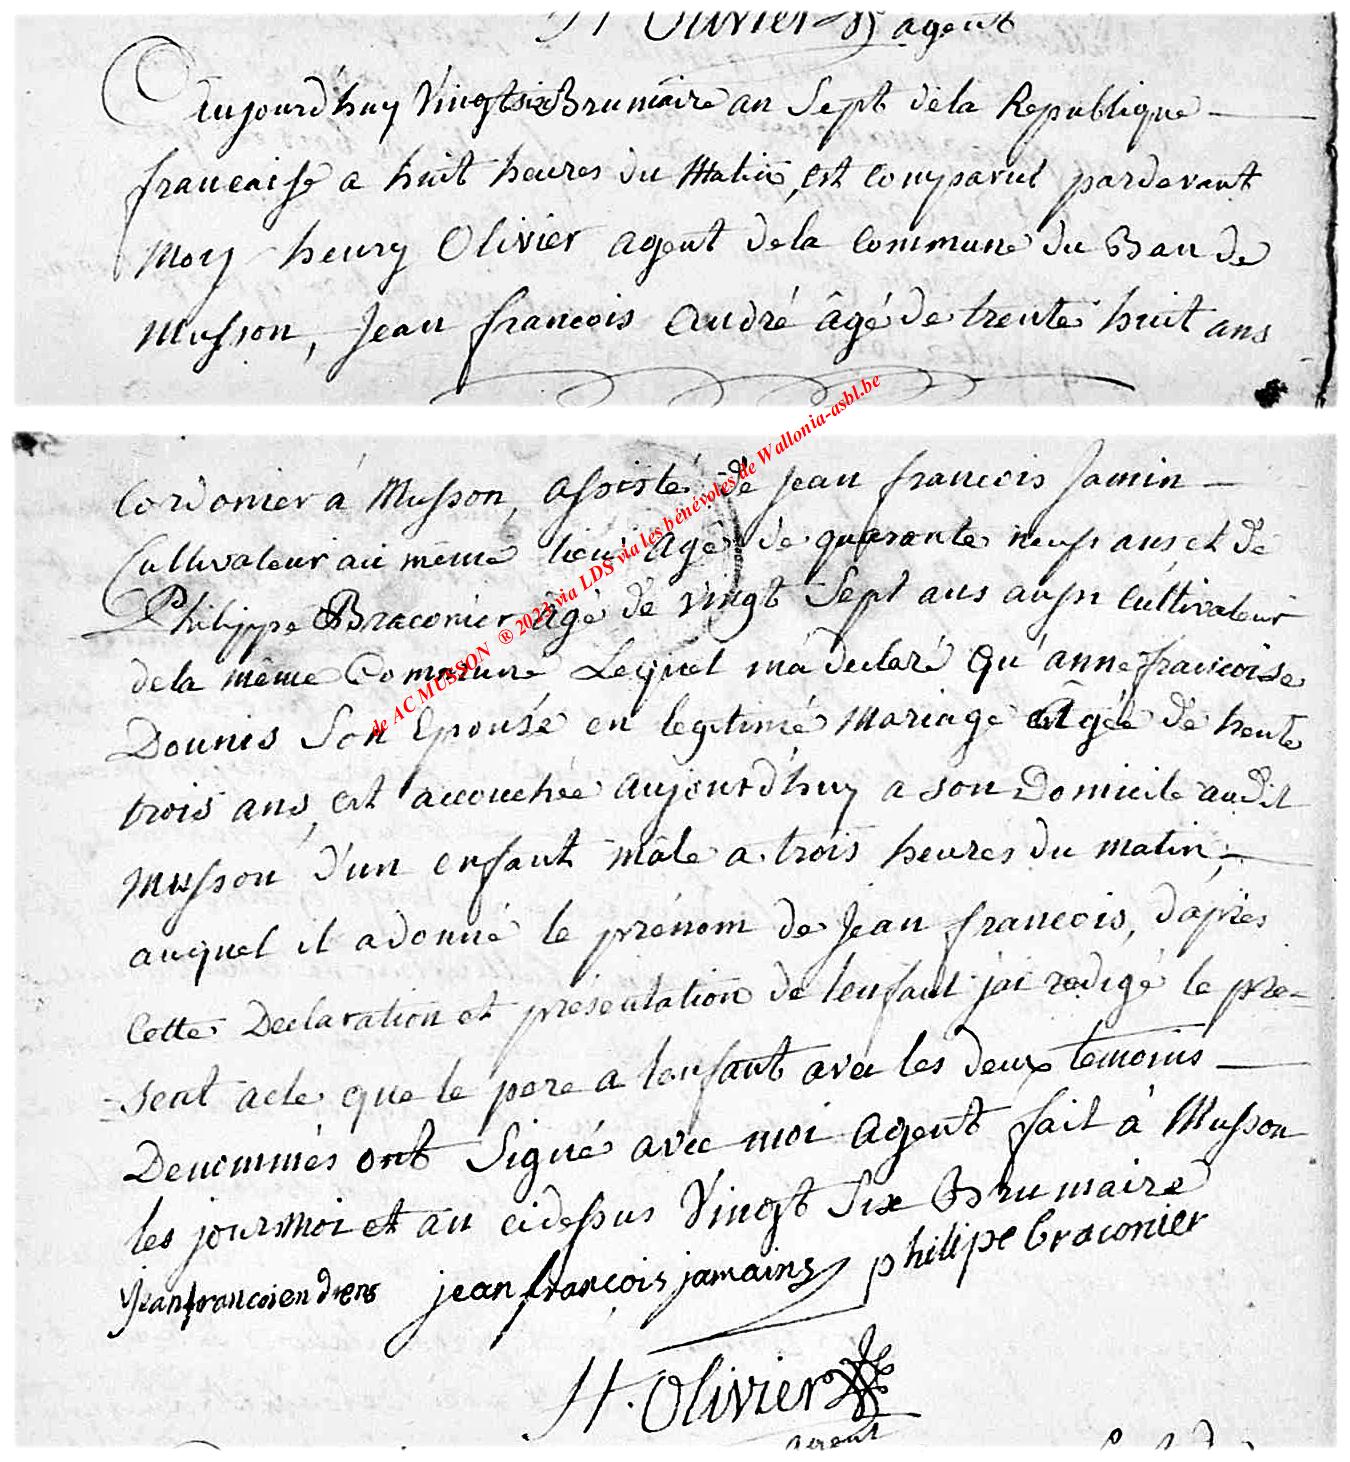 H Olivier agent
Aujourd'huy Vingtsix Brumaire an Sept dela Republique
francaise a huit heures du Matin, est comparut pardevant
Moy henry Olivier agent dela commune du Ban de
Musson, Jean francois andré âgé de trente huit ans
Cordonier á Musson, assisté de jean francois Jamin
Cultivateur au même lieu agé de quarante neuf ans et de
Philippe Braconier âgé de vingt Sept ans aussi cultivateur
dela même Commune Lequel m'a declaré Qu'anne francoise
Dounis Son Epousé en legitimé Mariage Agée de trente
trois ans, est accouchée aujourd'huy a son Domicile audit
Musson d'un enfant mâle a trois heures du matin,
auquel il a donné le prénom de Jean francois, d'apres
Cette Declaration et présentation de lenfant j'ai redigé le pre-
sent acte que le pere a lenfant avec les deux temoins
Denommés ont Signé avec moi Agent fait á Musson
les jour moi et an cidessus Vingt Six Brumaire
jean francoi endrens jean françois jamains philipe braconier
H. Olivier
agent
de AC MUSSON ® 2023 via LDS via les bénévoles de Wallonia-asbl.be